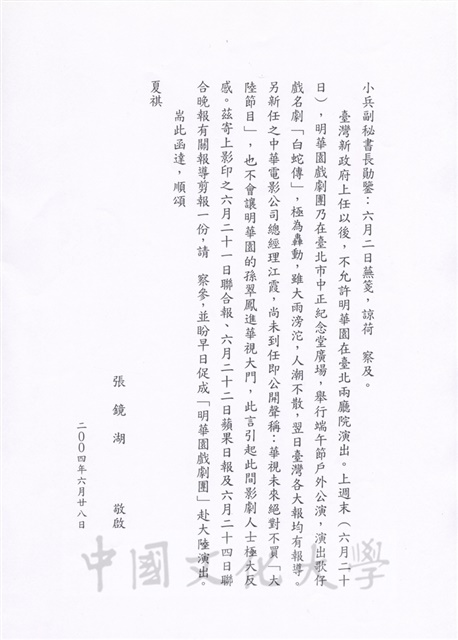 小兵副秘書長勛鑒：六月二日蕪箋，諒荷　察及。
臺灣新政府上任以後，不允許明華園在臺北兩廳院演出。上週末（六月二十
日），明華園戲劇團乃在臺北市中正紀念堂廣場，舉行端午節戶外公演，演出歌仔
戲名劇「白蛇傳」，極為轟動，雖大雨滂沱，人潮不散，翌日臺灣各大報均有報導。
另新任之中華電影公司總經理江霞，尚未到任即公開聲稱：華視未來絕對不買「大
陸節目」，也不會讓明華園的孫翠鳳進華視大門，此言引起此間影劇人士極大反
感。茲寄上影印之六月二十一日聯合報、六月二十二日蘋果日報及六月二十四日聯
合晚報有關報導剪報一份，請　察參，並盼早日促成「明華園戲劇團」赴大陸演出。
耑此函達，順頌
夏祺
張鏡湖　敬啟
二〇〇四年六月廿八日
中國文化大學